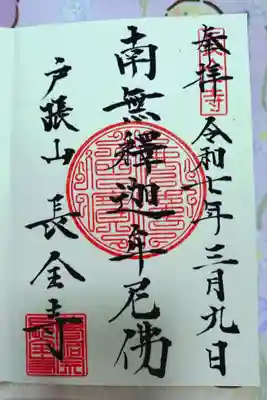 奉拝
令和七年三月九日
南無釋迦牟尼佛
戸張山 長全寺